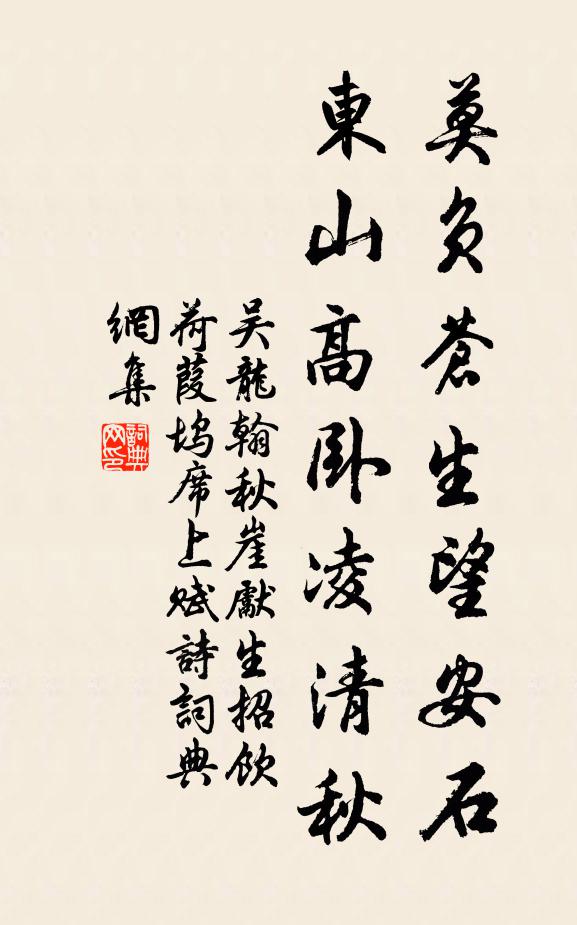 莫負蒼生望安石
東山高卧凌清秋
吴龍翰秋崖獻生招飲
荷葭塢席上賦詩詞典
網集
詞典
网印